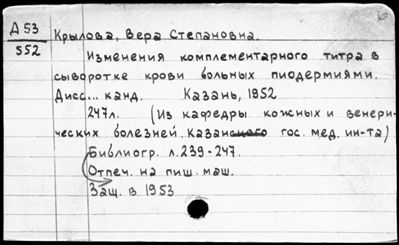 Д 53
552
Крылова, Вера Степановна.
Изменения комплементарного титра в
сыворотке крови больных пиодермиями.
Дисс... канд. Казань, 1952
247л. (Из кафедры кожных и венери-
ческих болезней. Казанского гос. мед. ин-та)
Библиогр. л.239-247.
Отпеч. на пиш. маш.
Защ. в 1953